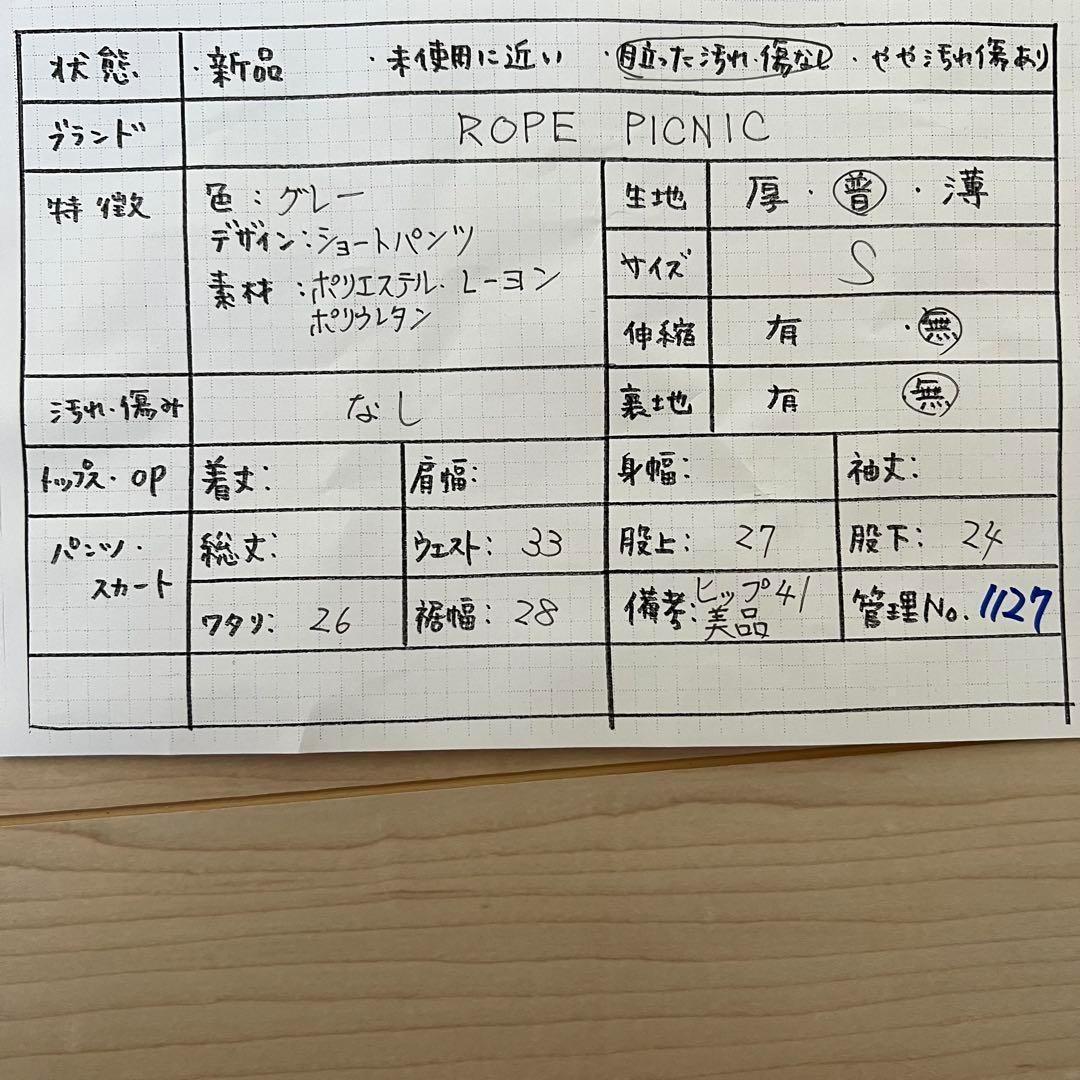 状態 ・新品 ・未使用に近い ・目立った汚れ・傷なし ・やや汚れ傷あり
ブランド ROPE PICNIC
特徴 色：グレー
デザイン：ショートパンツ
素材：ポリエステル・レーヨン
ポリウレタン
生地 厚・普・薄
サイズ S
伸縮 有 ・無
汚れ・傷み なし
裏地 有 無
トップス・OP 着丈： 肩幅： 身幅： 袖丈：
パンツ・スカート 総丈： ウエスト：33 股上：27 股下：24
ワタリ：26 裾幅：28 備考：ヒップ41 管理No. 1127
美品